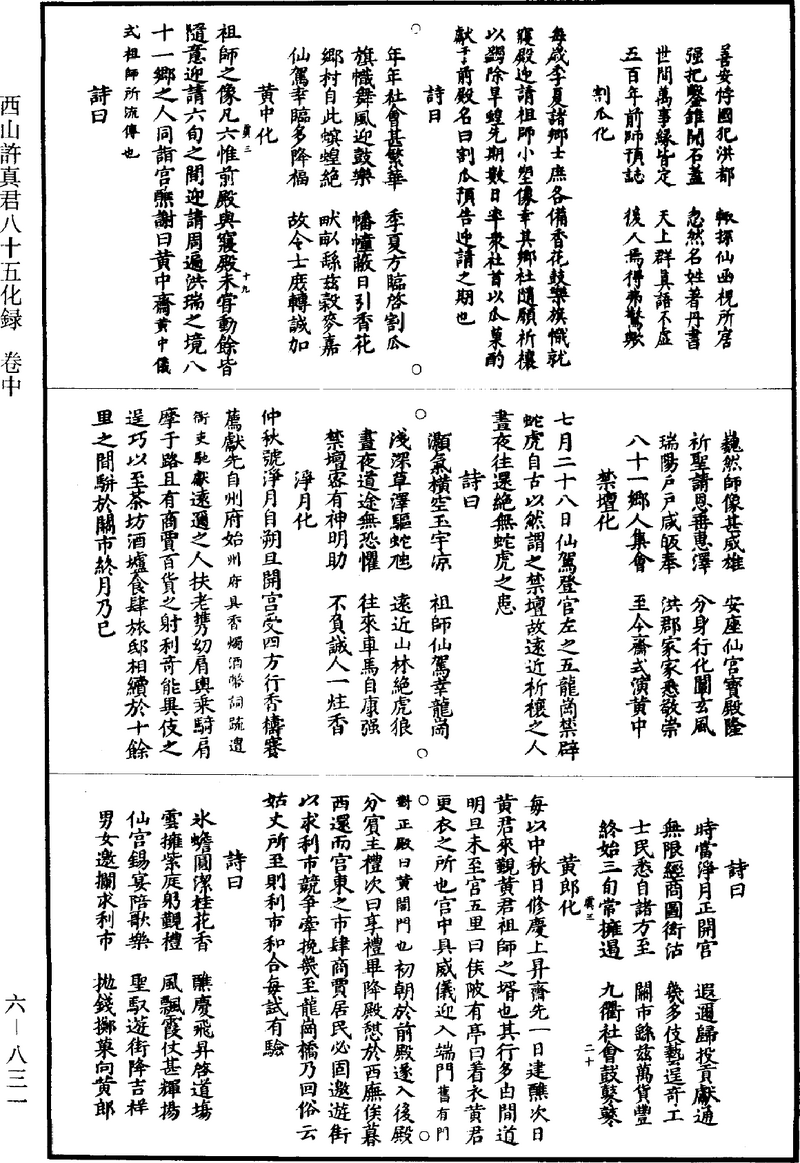 善安悖國犯洪都　輙探仙函梘所居
强把鑿錐開石蓋　忽然名姓著丹書
世間萬事緣皆定　天上群真語不虛
五百年前師預誌　後人焉得弗驚歟
割瓜化
每歲季夏諸鄉士庶各備香花鼓樂旗幟就
寢殿迎請祖師小塑像幸其鄉社隨願祈禳
以蠲除旱蝗先期數日率衆社首以瓜菓酌
獻于前殿名曰割瓜預告迎請之期也
詩曰
年年社會甚繁華　季夏方臨啓割瓜
旗幟舞風迎鼓樂　幡幢蔽日引香花
鄉村自此螟蝗絶　畎畝繇兹穀麥嘉
仙駕幸臨多降福　故令士庶轉誠加
黄中化
祖師之像凡六惟前殿與寢殿未甞動餘皆
虞三　十九
隨意迎請六旬之間迎請周遍洪瑞之境八
十一鄉之人同詣宫醮謝曰黄中齋黄中儀
式祖師所流傳也
詩曰
巍然師像甚威雄　安座仙宫寳殿隆
祈聖請恩垂惠澤　分身行化闡玄風
瑞陽戸戸咸皈奉　洪郡家家悉敬崇
八十一鄉人集會　至今齋式演黄中
禁壇化
七月二十八日仙駕登宫左之五龍崗禁辟
蛇虎自古以然謂之禁壇故遠近祈禳之人
晝夜往還絶無蛇虎之患
詩曰
灝氣横空玉宇凉　祖師仙駕幸龍崗
淺深草澤驅蛇虺　遠近山林絶虎狼
晝夜道途無恐懼　往來車馬自康强
禁壇宻有神明助　不負誠人一炷香
淨月化
仲秋號淨月自朔旦開宫受四方行香禱賽
薦獻先自州府始州府具香燭酒幣詞疏遣
衙吏馳獻遠邇之人扶老携幼肩輿乘騎肩
摩于路且有商賈百貨之射利奇能異伎之
逞巧以至茶坊酒壚食肆旅邸相續於十餘
里之間駢於闤市終月乃已
詩曰
時當淨月正開宫　遐邇歸投貢獻通
無限經商圖衒沽　幾多伎藝逞奇工
士民悉自諸方至　闤市繇兹萬貨豐
終始三旬常擁遏　九衢社會鼓鼕鼕
虞三　二十
黄郎化
每以中秋日修慶上昇齋先一日建醮次日
黄君來覲黄君祖師之壻也其行多由間道
明旦未至宫五里曰侯陂有亭曰着衣黄君
更衣之所也宫中具威儀迎入端門舊有門
對正殿曰黄閤門也初朝於前殿遂入後殿
分賓主禮次曰享禮畢降殿憇於西廡俟暮
西還而宫東之市肆商賈居民必固邀遊街
以求利市競爭牽挽幾至龍崗橋乃回俗云
姑丈所至則利市和合每試有驗
詩曰
氷蟾圓潔桂花香　醮慶飛昇啓道塲
雲擁紫庭躬覲禮　風飄霞仗甚輝揚
仙宫錫宴陪歌樂　聖馭遊街降吉祥
男女邀攔求利市　抛錢擲菓向黄郎
西山許真君八十五化録　卷中
六—八三一